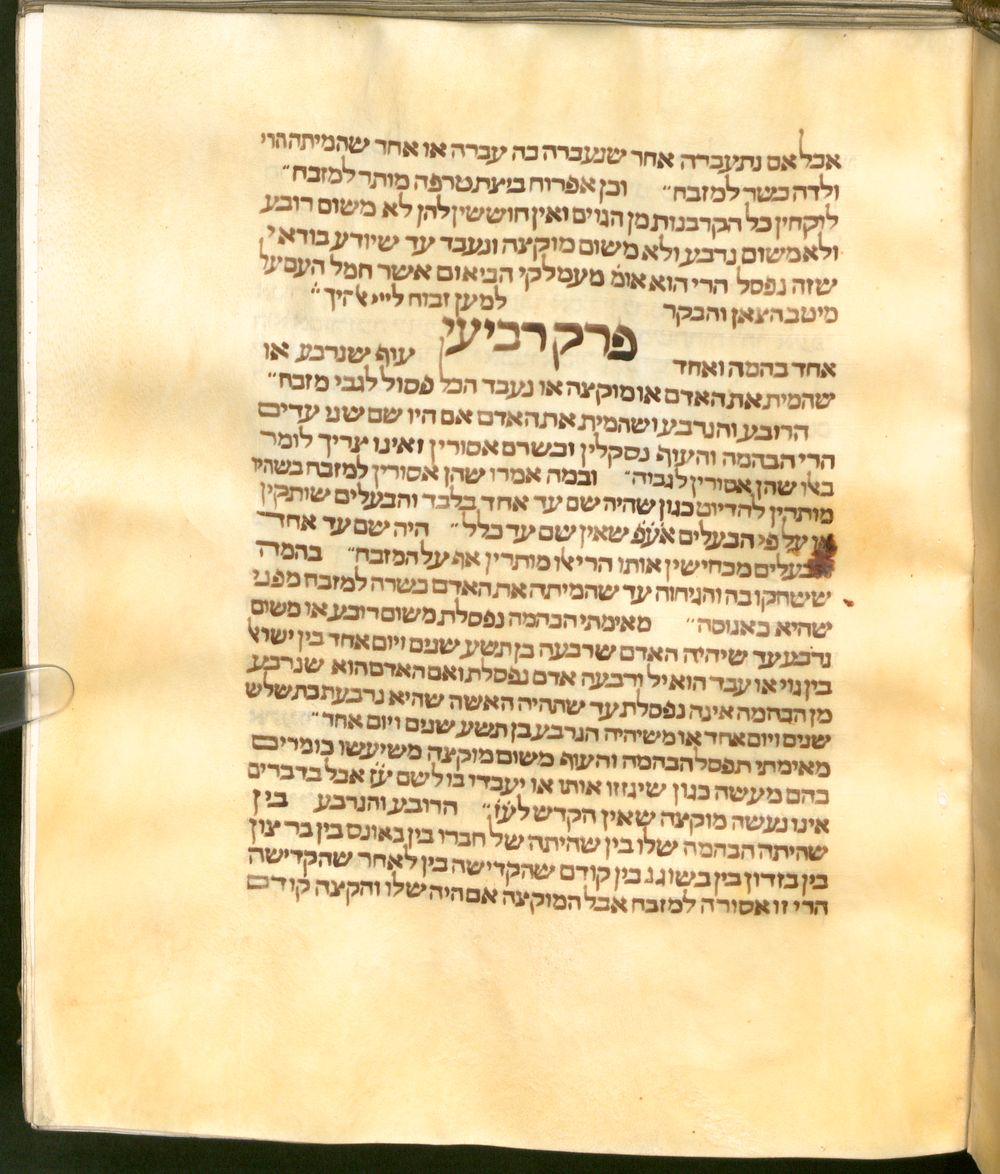 אבל אם נתעברה אחר שנעברה בה עברה או אחר שהמיתה הרי
ולדה כשר למזבח״ וכן אפרוח ביצת טרפה מותר למזבח״
לוקחין כל הקרבנות מן הגוים ואין חוששין להן לא משום רובע
ולא משום נרבע ולא משום מוקצה ונעבד עד שיודע בודאי
שזה נפסל הרי הוא אומ׳ מעמלקי הביאום אשר חמל העם על
מיטב הצאן והבקר למען זבוח ליי׳ אלהיך״
פרק רביעי
אחד בהמה ואחד עוף שנרבע או
שהמית את האדם או מוקצה או נעבד הכל פסול לגבי מזבח״
הרובע והנרבע ושהמית את האדם אם היו שם שני עדים
הרי הבהמה והעוף נסקלין ובשרם אסורין ואינו צריך לומר
באלו שהן אסורין לגבוה״ ובמה אמרו שהן אסורין למזבח כשהיו
מותרין להדיוט כגון שהיה שם עד אחד בלבד והבעלים שותקין
או על פי הבעלים אע״פ שאין שם עד כלל״ היה שם עד אחד
והבעלים מכחישין אותו הרי אלו מותרין אף על המזבח״ בהמה
ששחקו בה והניחוה עד שהמיתה את האדם כשרה למזבח מפני
שהיא כאנוסה״ מאימתי הבהמה נפסלת משום רובע או משום
נרבע עד שיהיה האדם שרבעה בן תשע שנים ויום אחד בין ישראל
בין גוי או עבד הואיל ורבעה אדם נפסלת ואם האדם הוא שנרבע
מן הבהמה אינה נפסלת עד שתהיה האשה שהיא נרבעת בת שלש
שנים ויום אחד או משיהיה הנרבע בן תשע שנים ויום אחד״
מאימתי תפסל הבהמה והעוף משום מוקצה משיעשו כומרים
בהם מעשה כגון שיגזזו אותו או יעבדו בו לשם ע״ז אבל בדברים
אינו נעשה מוקצה שאין הקדש לע״ז״ הרובע והנרבע בין
שהיתה הבהמה שלו בין שהיתה של חברו בין באונס בין ברצון
בין בזדון בין בשוגג בין קודם שהקדישה בין לאחר שהקדישה
הרי זו אסורה למזבח אבל המוקצה אם היה שלו והקצה קודם